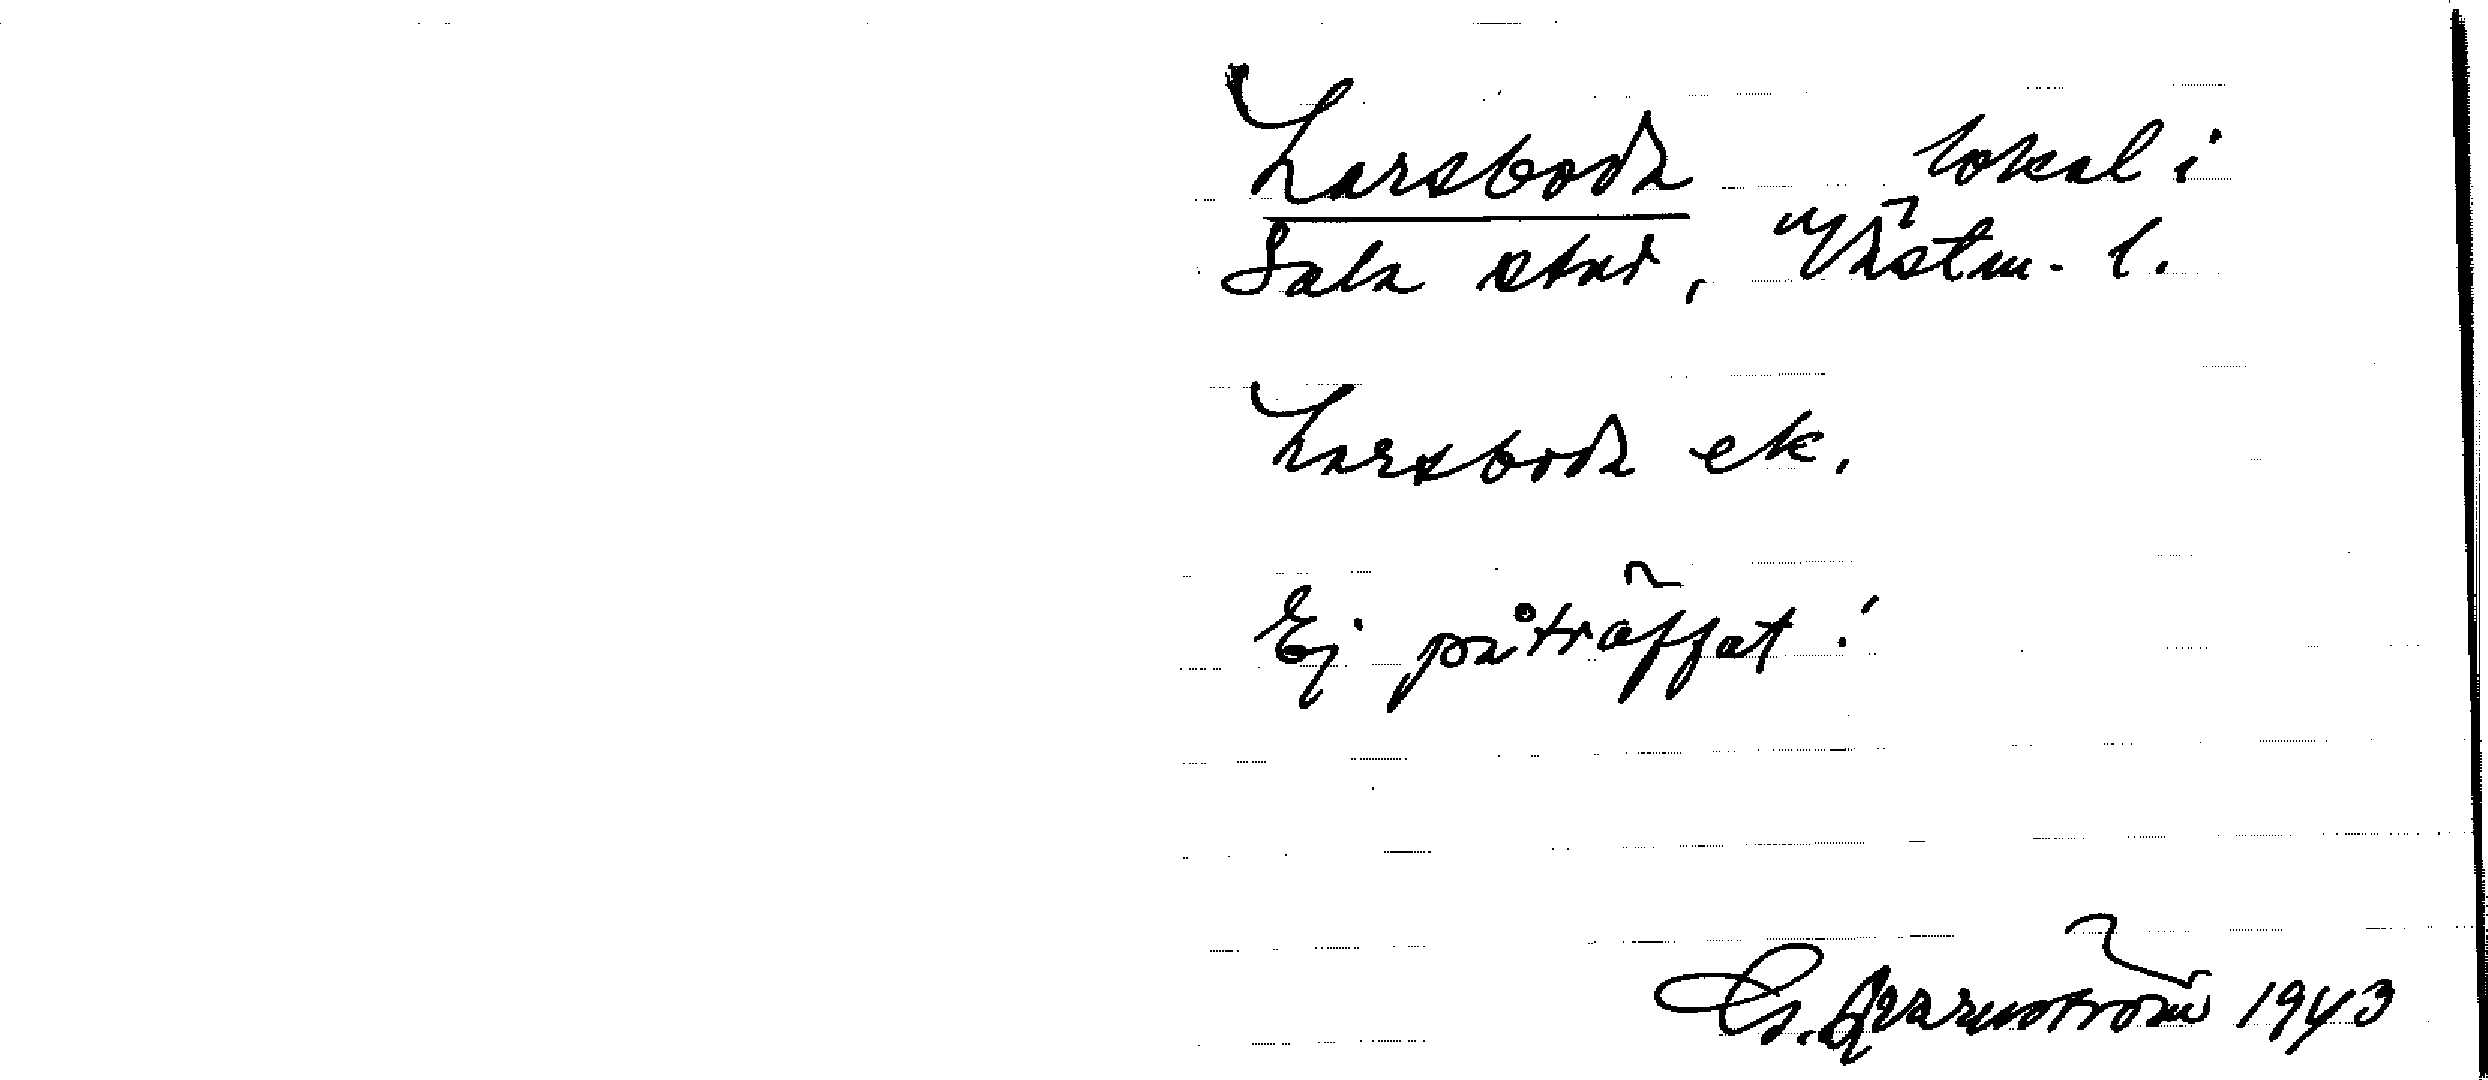 Larsboda lokal i
Sala stad, Västm. l.
Larsboda ek.
Ej påträffat!
G. Qvarnström 1943